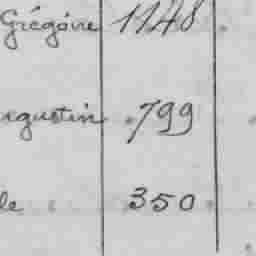 Grégoire 1148
ugustin 799
le 350